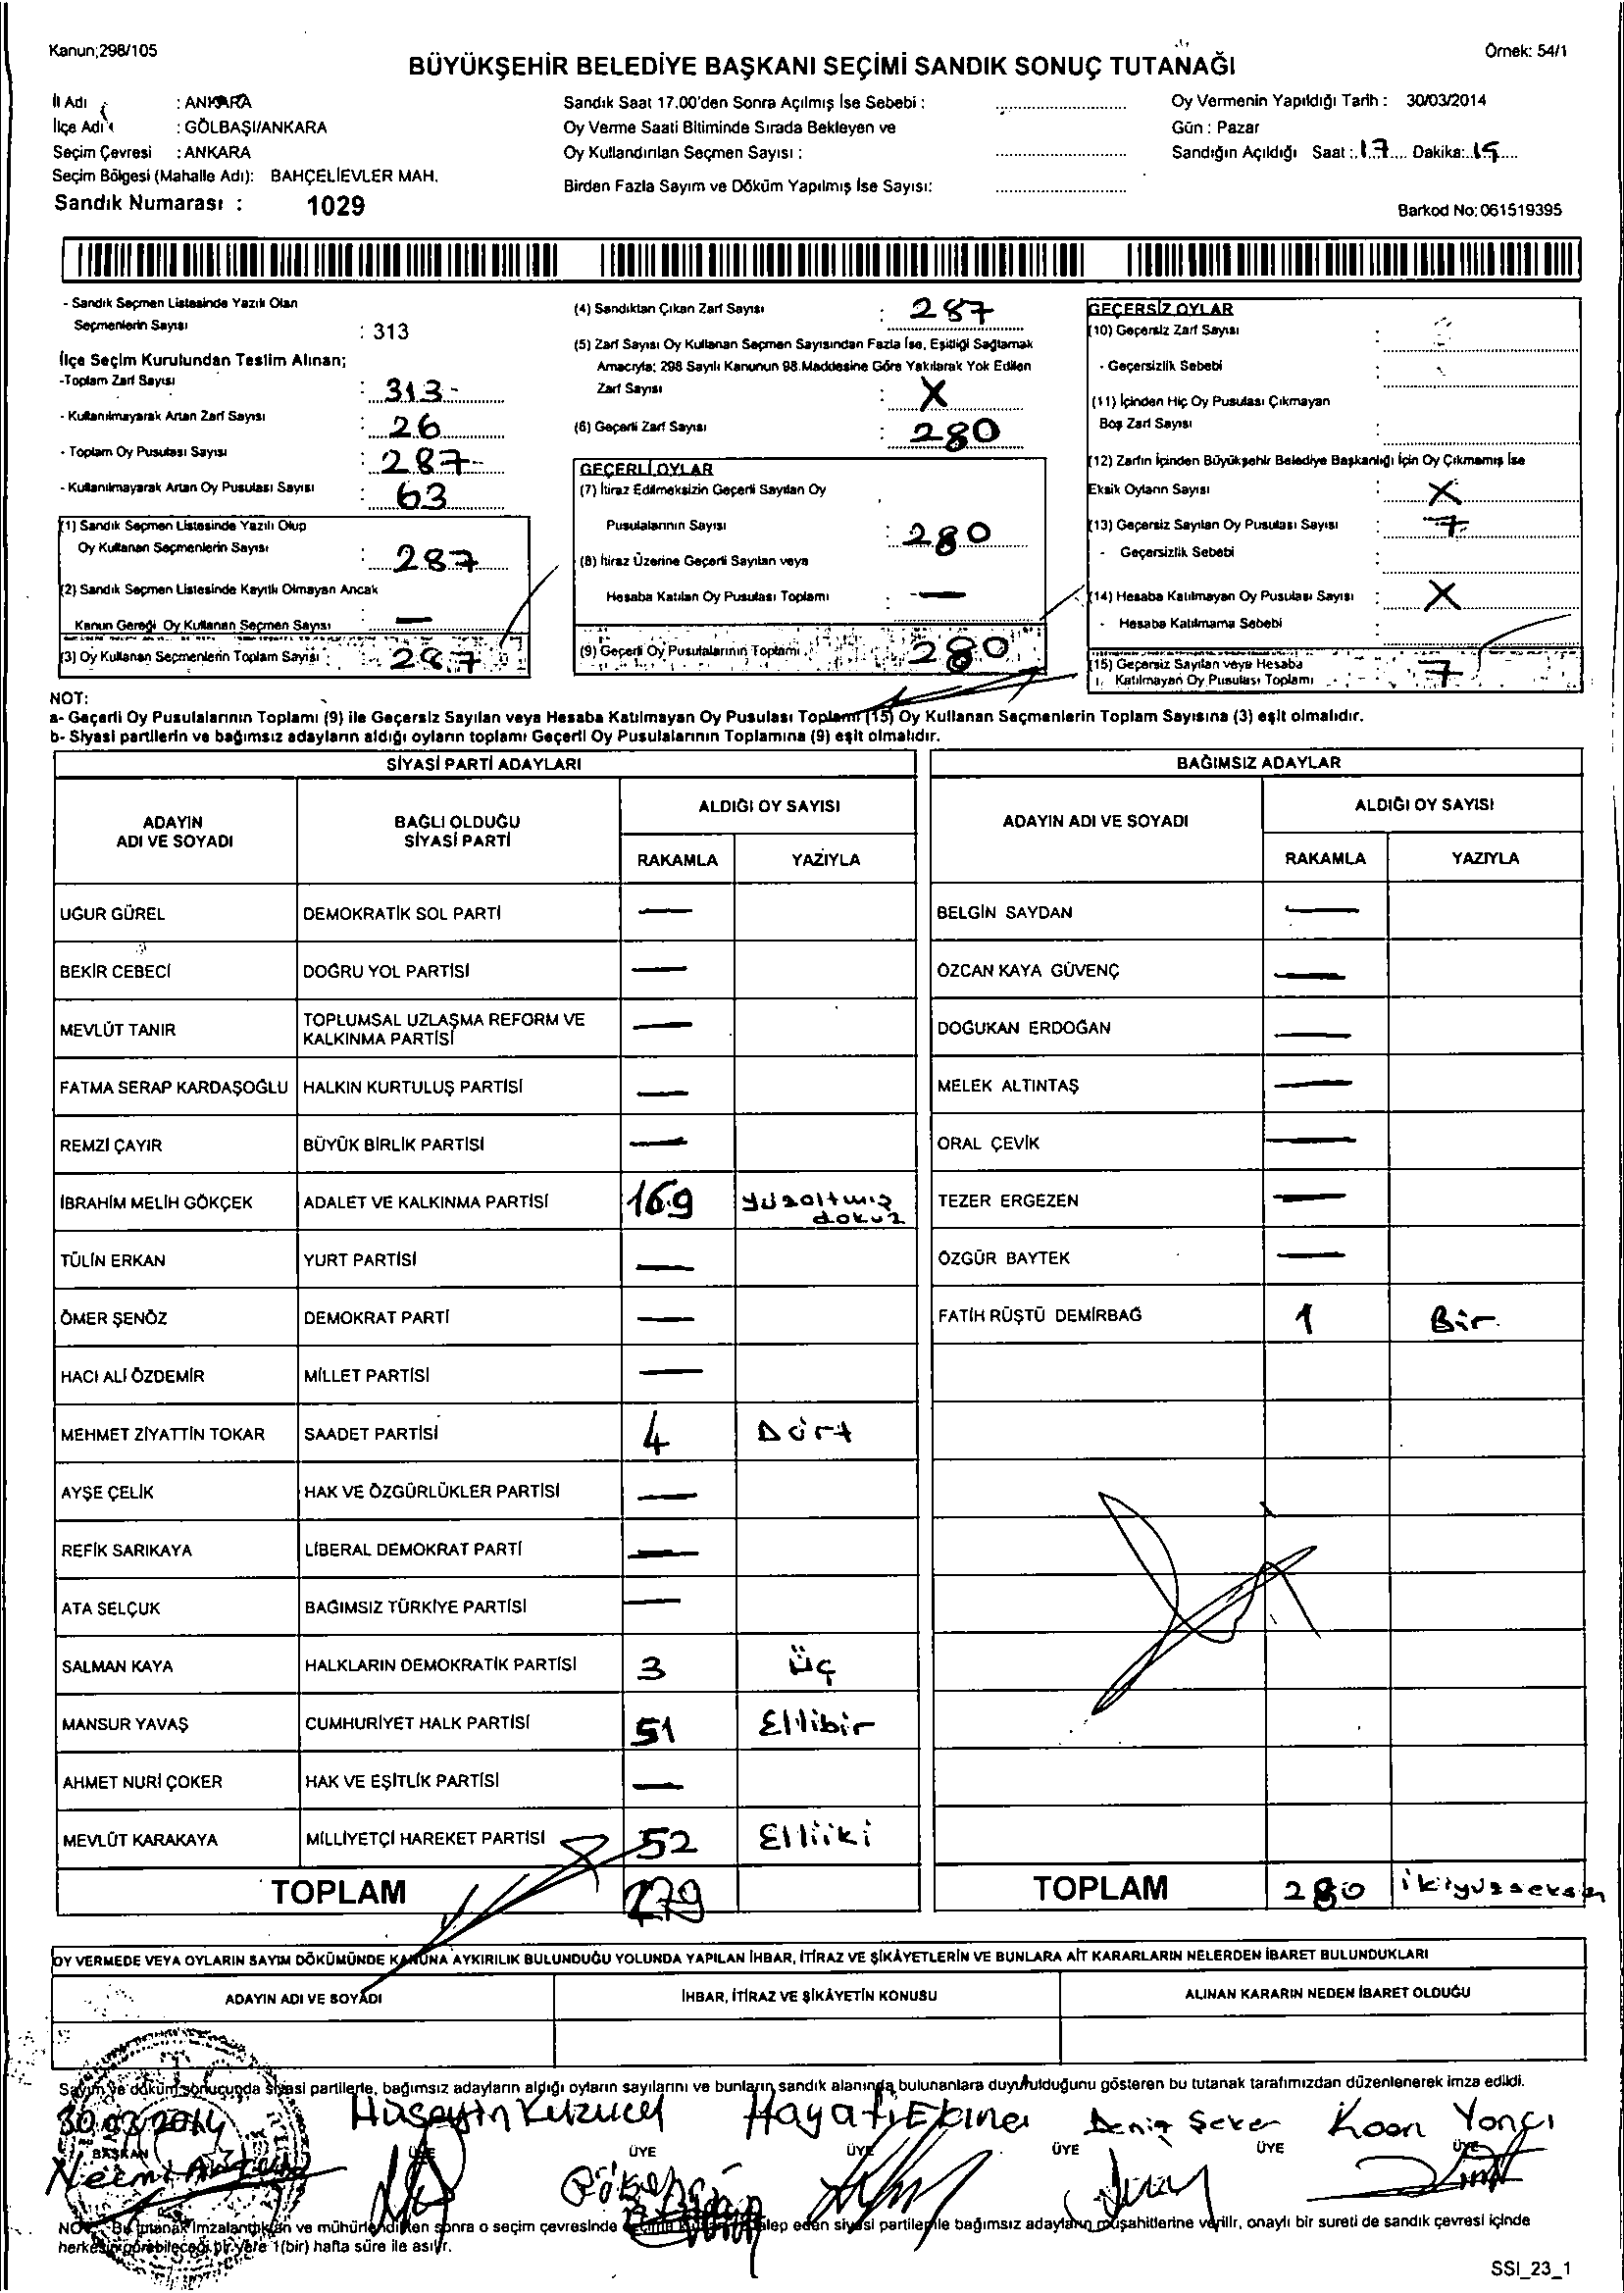 Kanun;298/105
Örnek: 54/1
BÜYÜKŞEHİR BELEDİYE BAŞKANI SEÇİMİ SANDIK SONUÇ TUTANAĞI
İl Adı : ANKARA
İlçe Adı : GÖLBAŞI/ANKARA
Seçim Çevresi : ANKARA
Seçim Bölgesi (Mahalle Adı): BAHÇELİEVLER MAH.
Sandık Numarası : 1029
Sandık Saat 17.00'den Sonra Açılmış İse Sebebi :
Oy Verme Saati Bitiminde Sırada Bekleyen ve
Oy Kullandırılan Seçmen Sayısı :
Birden Fazla Sayım ve Döküm Yapılmış İse Sayısı:
Oy Vermenin Yapıldığı Tarih : 30/03/2014
Gün : Pazar
Sandığın Açıldığı Saat : 17 Dakika: 15
Barkod No: 061519395
- Sandık Seçmen Listesinde Yazılı Olan
Seçmenlerin Sayısı : 313
İlçe Seçim Kurulundan Teslim Alınan;
-Toplam Zarf Sayısı : 313
- Kullanılmayarak Artan Zarf Sayısı : 26
- Toplam Oy Pusulası Sayısı : 287
- Kullanılmayarak Artan Oy Pusulası Sayısı : 63
(1) Sandık Seçmen Listesinde Yazılı Olup
Oy Kullanan Seçmenlerin Sayısı : 287
(2) Sandık Seçmen Listesinde Kayıtlı Olmayan Ancak
Kanun Gereği Oy Kullanan Seçmen Sayısı : —
(3) Oy Kullanan Seçmenlerin Toplam Sayısı : 287
(4) Sandıktan Çıkan Zarf Sayısı : 287
(5) Zarf Sayısı Oy Kullanan Seçmen Sayısından Fazla İse, Eşitliği Sağlamak
Amacıyla; 298 Sayılı Kanunun 98.Maddesine Göre Yakılarak Yok Edilen
Zarf Sayısı : X
(6) Geçerli Zarf Sayısı : 280
GEÇERLİ OYLAR
(7) İtiraz Edilmeksizin Geçerli Sayılan Oy
Pusulalarının Sayısı : 280
(8) İtiraz Üzerine Geçerli Sayılan veya
Hesaba Katılan Oy Pusulası Toplamı : —
(9) Geçerli Oy Pusulalarının Toplamı : 280
GEÇERSİZ OYLAR
(10) Geçersiz Zarf Sayısı :
- Geçersizlik Sebebi :
(11) İçinden Hiç Oy Pusulası Çıkmayan
Boş Zarf Sayısı :
(12) Zarfın İçinden Büyükşehir Belediye Başkanlığı İçin Oy Çıkmamış İse
Eksik Oyların Sayısı : X
(13) Geçersiz Sayılan Oy Pusulası Sayısı : 7
- Geçersizlik Sebebi :
(14) Hesaba Katılmayan Oy Pusulası Sayısı : X
- Hesaba Katılmama Sebebi :
(15) Geçersiz Sayılan veya Hesaba
Katılmayan Oy Pusulası Toplamı : 7
NOT:
a- Geçerli Oy Pusulalarının Toplamı (9) ile Geçersiz Sayılan veya Hesaba Katılmayan Oy Pusulası Toplamı (15) Oy Kullanan Seçmenlerin Toplam Sayısına (3) eşit olmalıdır.
b- Siyasi partilerin ve bağımsız adayların aldığı oyların toplamı Geçerli Oy Pusulalarının Toplamına (9) eşit olmalıdır.
SİYASİ PARTİ ADAYLARI
ADAYIN ADI VE SOYADI
BAĞLI OLDUĞU SİYASİ PARTİ
ALDIĞI OY SAYISI
RAKAMLA YAZIYLA
UĞUR GÜREL DEMOKRATİK SOL PARTİ —
BEKİR CEBECİ DOĞRU YOL PARTİSİ —
MEVLÜT TANIR TOPLUMSAL UZLAŞMA REFORM VE KALKINMA PARTİSİ —
FATMA SERAP KARDAŞOĞLU HALKIN KURTULUŞ PARTİSİ —
REMZİ ÇAYIR BÜYÜK BİRLİK PARTİSİ —
İBRAHİM MELİH GÖKÇEK ADALET VE KALKINMA PARTİSİ 169 yüzaltmış dokuz
TÜLİN ERKAN YURT PARTİSİ —
ÖMER ŞENÖZ DEMOKRAT PARTİ —
HACI ALİ ÖZDEMİR MİLLET PARTİSİ —
MEHMET ZİYATTİN TOKAR SAADET PARTİSİ 4 Dört
AYŞE ÇELİK HAK VE ÖZGÜRLÜKLER PARTİSİ —
REFİK SARIKAYA LİBERAL DEMOKRAT PARTİ —
ATA SELÇUK BAĞIMSIZ TÜRKİYE PARTİSİ —
SALMAN KAYA HALKLARIN DEMOKRATİK PARTİSİ 3 Üç
MANSUR YAVAŞ CUMHURİYET HALK PARTİSİ 51 Ellibir
AHMET NURİ ÇOKER HAK VE EŞİTLİK PARTİSİ —
MEVLÜT KARAKAYA MİLLİYETÇİ HAREKET PARTİSİ 52 Elliiki
TOPLAM 279
BAĞIMSIZ ADAYLAR
ADAYIN ADI VE SOYADI
ALDIĞI OY SAYISI
RAKAMLA YAZIYLA
BELGİN SAYDAN —
ÖZCAN KAYA GÜVENÇ —
DOĞUKAN ERDOĞAN —
MELEK ALTINTAŞ —
ORAL ÇEVİK —
TEZER ERGEZEN —
ÖZGÜR BAYTEK —
FATİH RÜŞTÜ DEMİRBAĞ 1 Bir
TOPLAM 280 ikiyüzseksen
OY VERMEDE VEYA OYLARIN SAYIM DÖKÜMÜNDE KANUNA AYKIRILIK BULUNDUĞU YOLUNDA YAPILAN İHBAR, İTİRAZ VE ŞİKÂYETLERİN VE BUNLARA AİT KARARLARIN NELERDEN İBARET BULUNDUKLARI
ADAYIN ADI VE SOYADI
İHBAR, İTİRAZ VE ŞİKÂYETİN KONUSU
ALINAN KARARIN NEDEN İBARET OLDUĞU
Sayım ve döküm sonucunda siyasi partilerle, bağımsız adayların aldığı oyların sayılarını ve bunların sandık alanında bulunanlara duyurulduğunu gösteren bu tutanak tarafımızdan düzenlenerek imza edildi.
30.03.2014 Hüseyin Hayati Deniz Şeker Yoncı
BAŞKAN ÜYE ÜYE ÜYE ÜYE ÜYE ÜYE
Necmi
NOT: Bu tutanak imzalandıktan ve mühürlendikten sonra o seçim çevresinde talep eden siyasi partiler ile bağımsız adayların müşahitlerine verilir, onaylı bir sureti de sandık çevresi içinde
herkesin görebileceği bir yere 1(bir) hafta süre ile asılır.
SSI_23_1